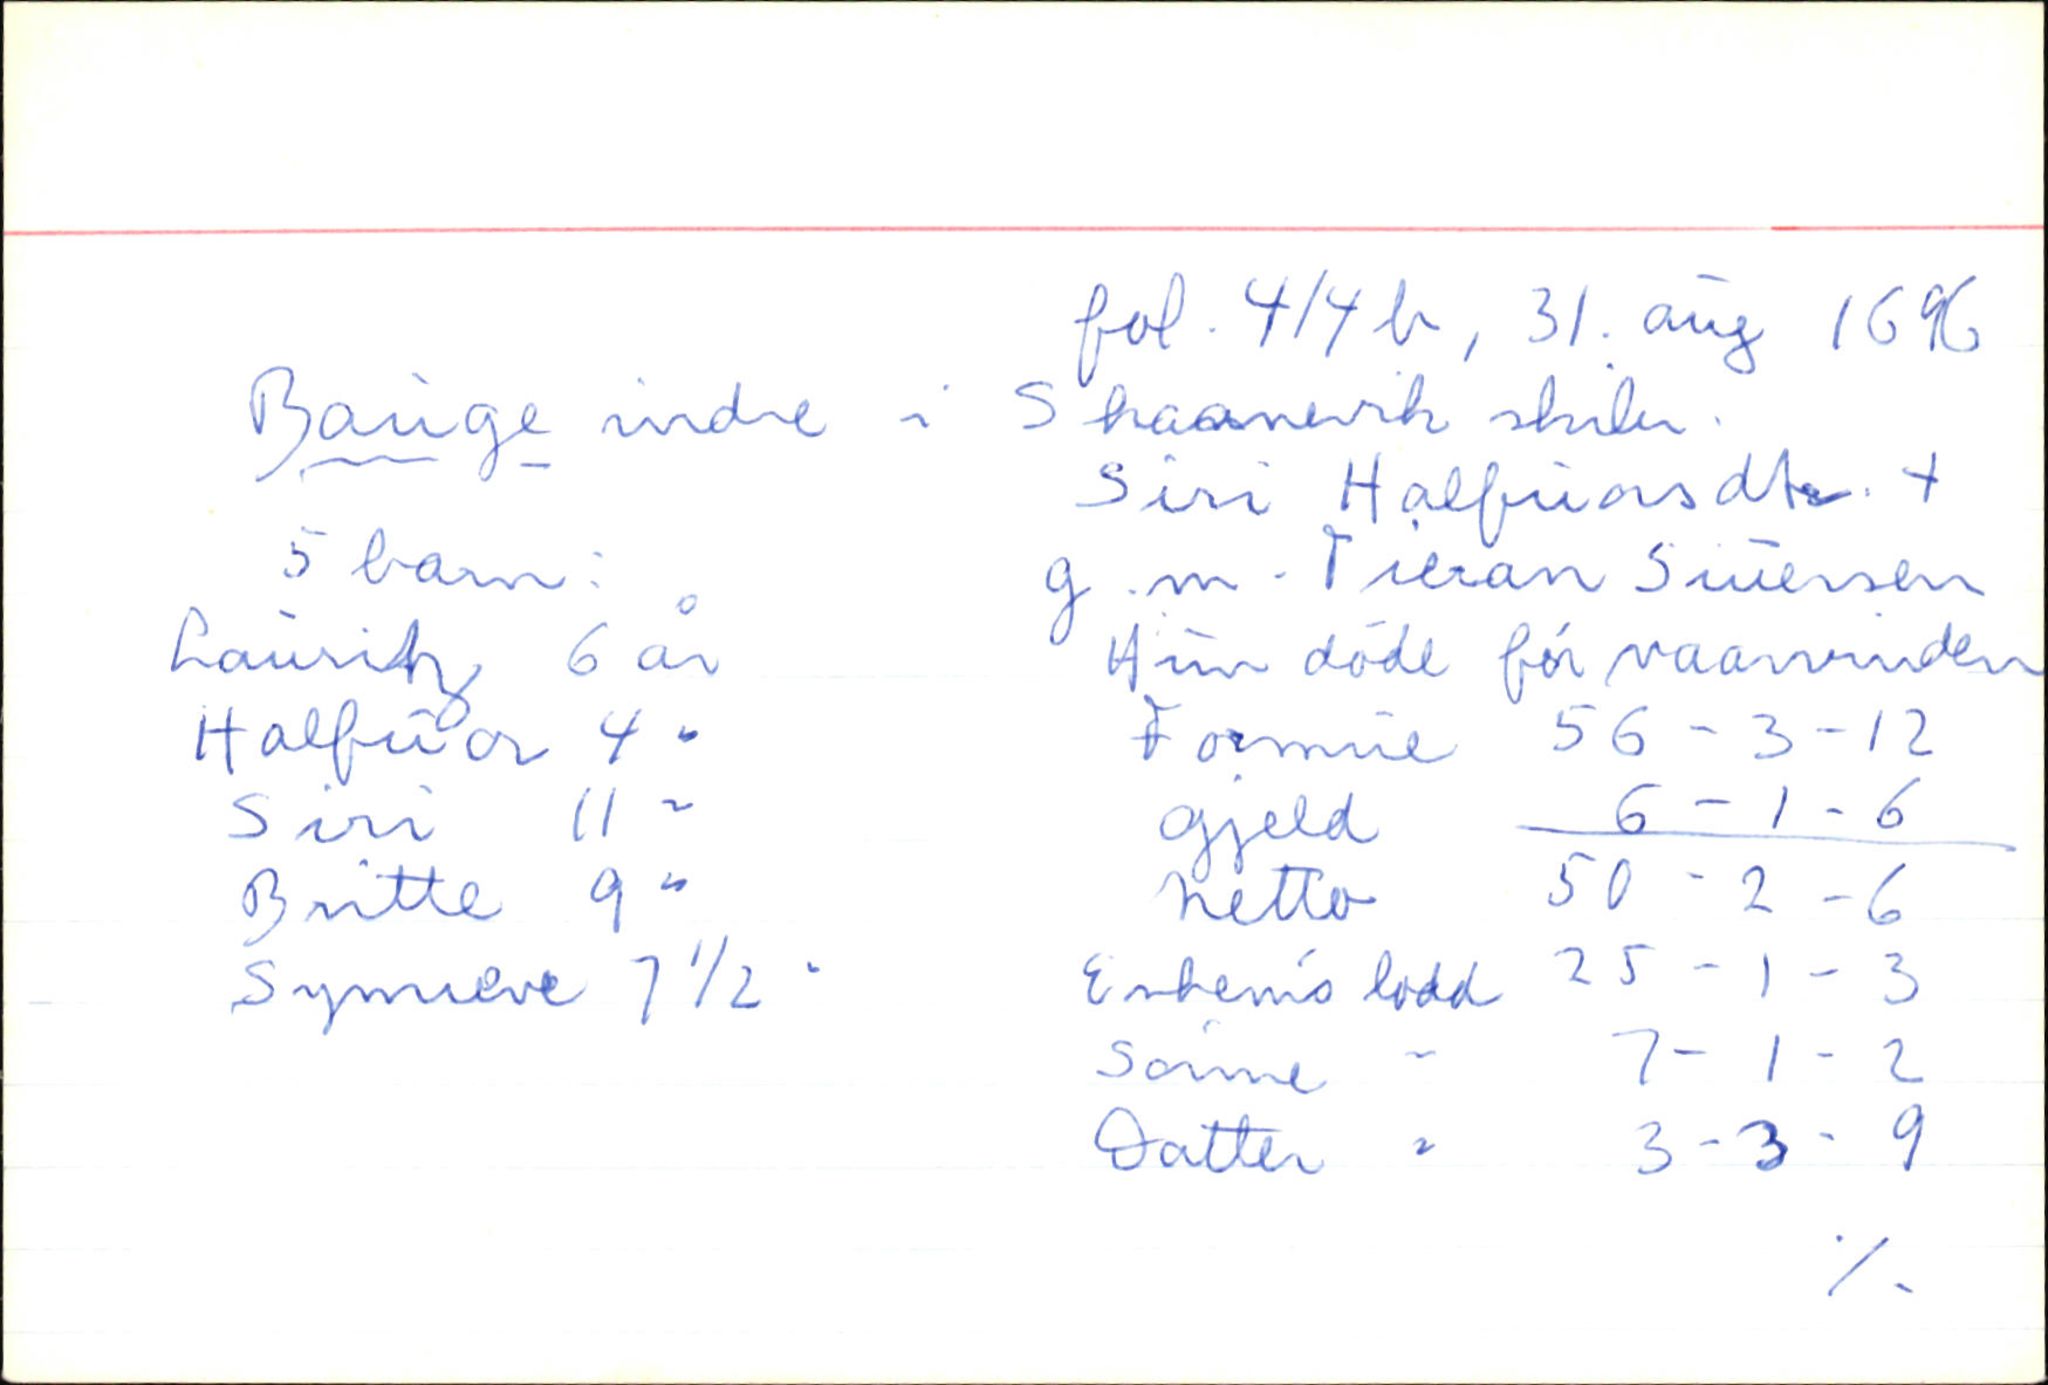 fol. 4/4b, 31. aug 1696
Bauge indre i Skaanevik skibr.
Siri Halfuorsdtr. +
g.m. Tieran Siuersen
Hun döde för vaarvinden
5 barn:
Lauritz 6 år
Halfuor 4 "
Siri 11 "
Britte 9 "
Synneve 7 1/2 "
Formue 56 - 3 - 12
Gjeld 6 - 1 - 6
Netto 50 - 2 - 6
Enkem's lodd 25 - 1 - 3
Sönne " 7 - 1 - 2
Datter " 3 - 3 - 9
./.